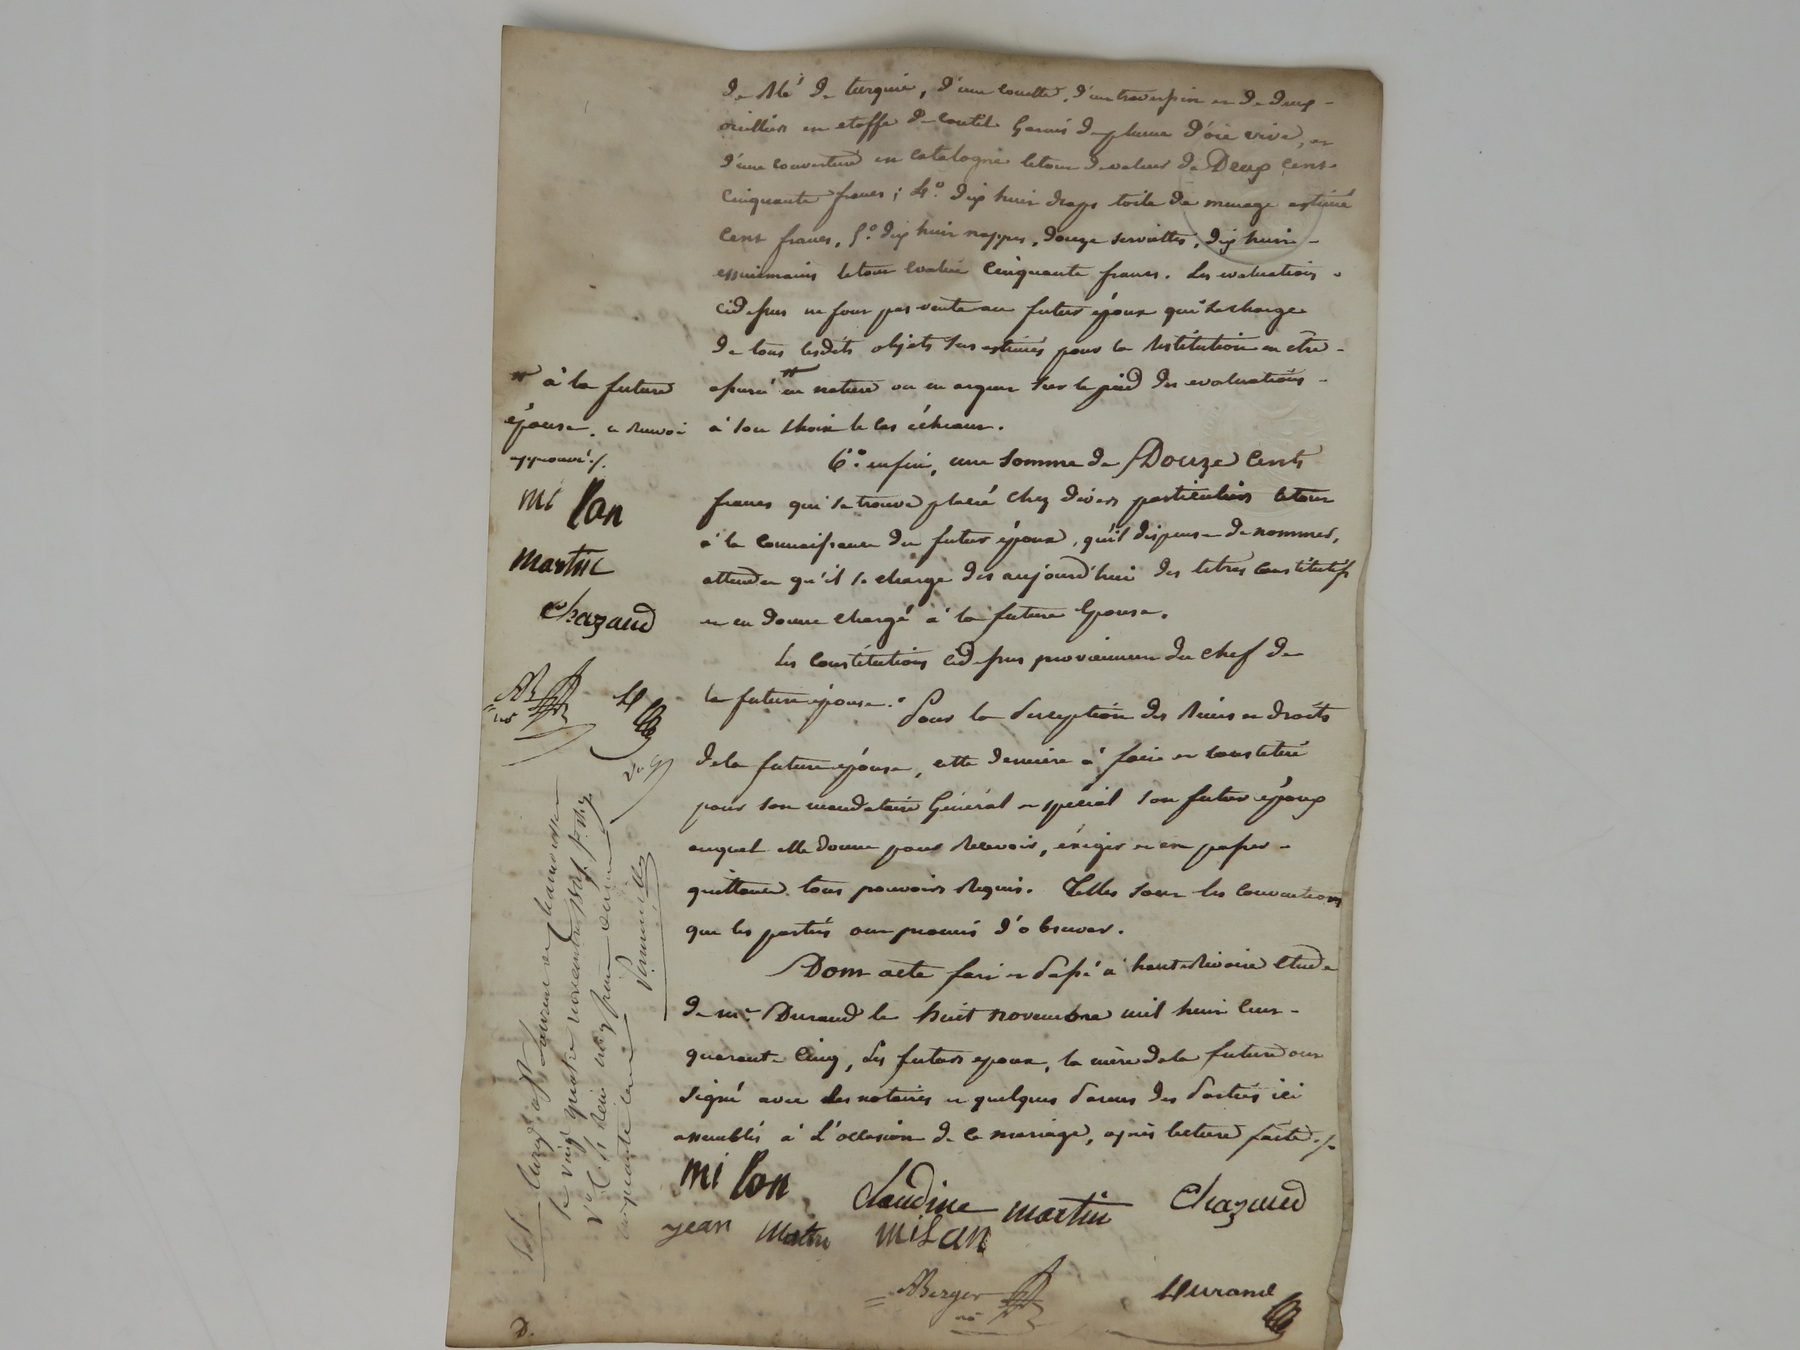 de blé de turquie, d'une couette, d'un traversin et de deux
oreillers en etoffe de coutil garnis de plume d'oie vive, et
d'une couverture en catalogne le tout de valeur de Deux cent
Cinquante francs; 4.o dix huit draps toile de menage estimé
Cent francs, 5.o dix huit nappes, douze serviettes, dix huit
essuiemains le tout evalué Cinquante francs. Les evaluations
cidessus ne font pas vente au futur époux qui se charge
de tous lesdits objets sus estimés pour la restitution en être
opérée en nature ou en argent sur le pied des evaluations
à son choix le cas échéant.
6.o enfin, une somme de Douze Cents
francs qui se trouve placée chez divers particuliers le tout
à la connaissance du futur époux, qu'il dispense de nommer,
attendu qu'il se charge dès aujourd'hui des titres constitutifs
et en donne charge à la future Epouse.
Les Constitutions cidessus proviennent du chef de
la future épouse. Pour la perception des biens et droits
dela future épouse, cette dernière à fait et constitué
pour son mandataire Général et spécial son futur époux
auquel elle donne pour recevoir, éxiger et en passer
quittance tous pouvoirs requis. Telles sont les conventions
que les partiés ont promis d'observer.
Dont acte fait et passé à hauterivoire etude
de me. Durand le huit novembre mil huit cent
quarante Cinq, Les futurs epoux, la mère dela future ont
signé avec les notaires et quelques parens des parties ici
assemblés à l'occasion de ce mariage, après lecture faite
à la future
épouse. ce renvoi
approuvé
mi lon
martin
Chazaud
mi lon
Claudine martin
Chazaud
jean
milan
ABerger
Durand
D.